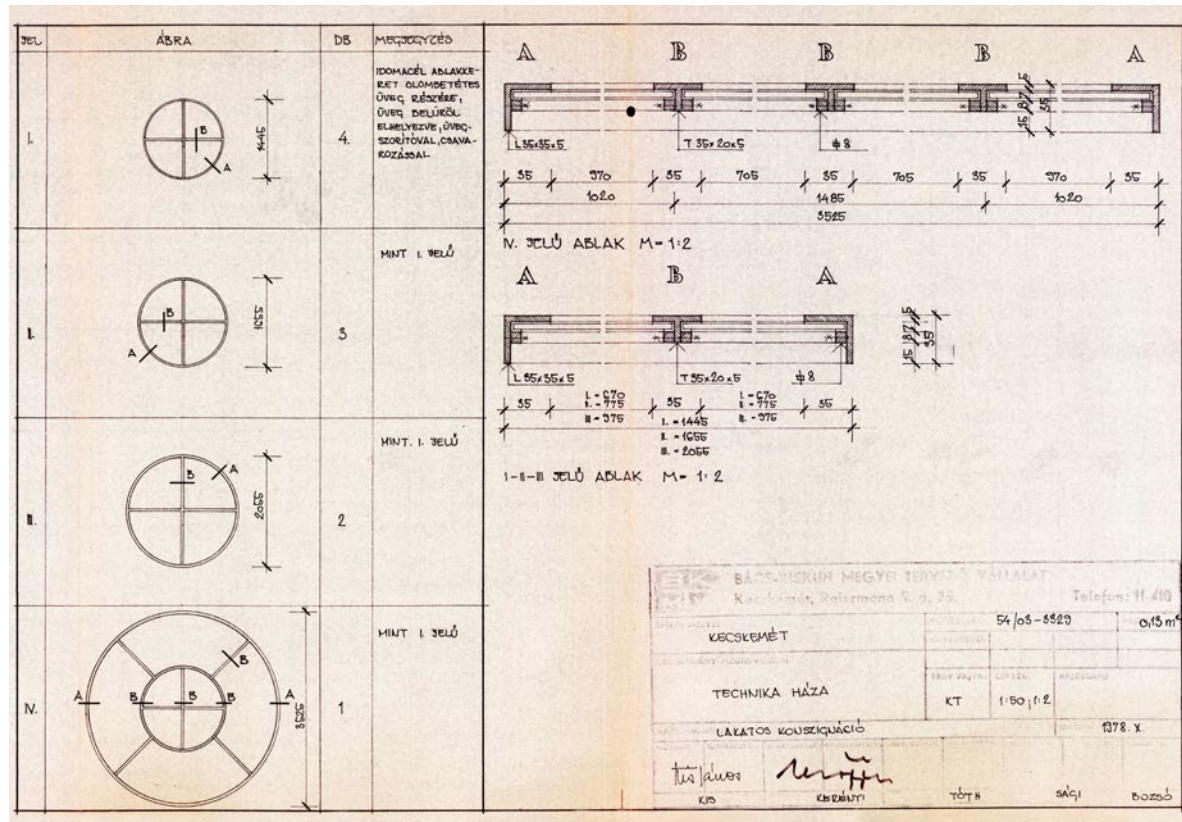 JEL ÁBRA DB MEGJEGYZÉS
I.
B
A
1445
4.
IDOMACÉL ABLAKKE-
RET ÓLOMBETÉTES
ÜVEG RÉSZÉRE,
ÜVEG BELÜRŐL
ELHELYEZVE, ÜVEG-
SZORÍTÓVAL, CSAVA-
ROZÁSSAL
II.
B
A
3
MINT I. JELŰ
III.
B
A
2055
2
MINT. I. JELŰ
IV.
A B B B A
B
3525
1
MINT I. JELŰ
A B B B A
L 35x35x5 T 35x20x5 ϕ 8
15 8 7 5
35
35 970 35 705 35 705 35 970 35
1020 1485 1020
3525
IV. JELŰ ABLAK M= 1:2
A B A
L 35x35x5 T 35x20x5 ϕ 8
15 8 7 5
35
35 35 35
I. = 670 I. = 670
II. = 775 II. = 775
III = 975 III. = 975
I. = 1445
II. = 1655
III. = 2055
I-II-III JELŰ ABLAK M= 1:2
BÁCS-KISKUN MEGYEI TERVEZŐ VÁLLALAT
Kecskemét, Telefon: 11-410
KECSKEMÉT
54/03-3329
0,13 m²
TECHNIKA HÁZA
KT
1:50; 1:2
LAKATOS KONSZIGNÁCIÓ
1978. X.
Kis János
KIS KERÉNYI TÓTH SÁGI BOZSÓ